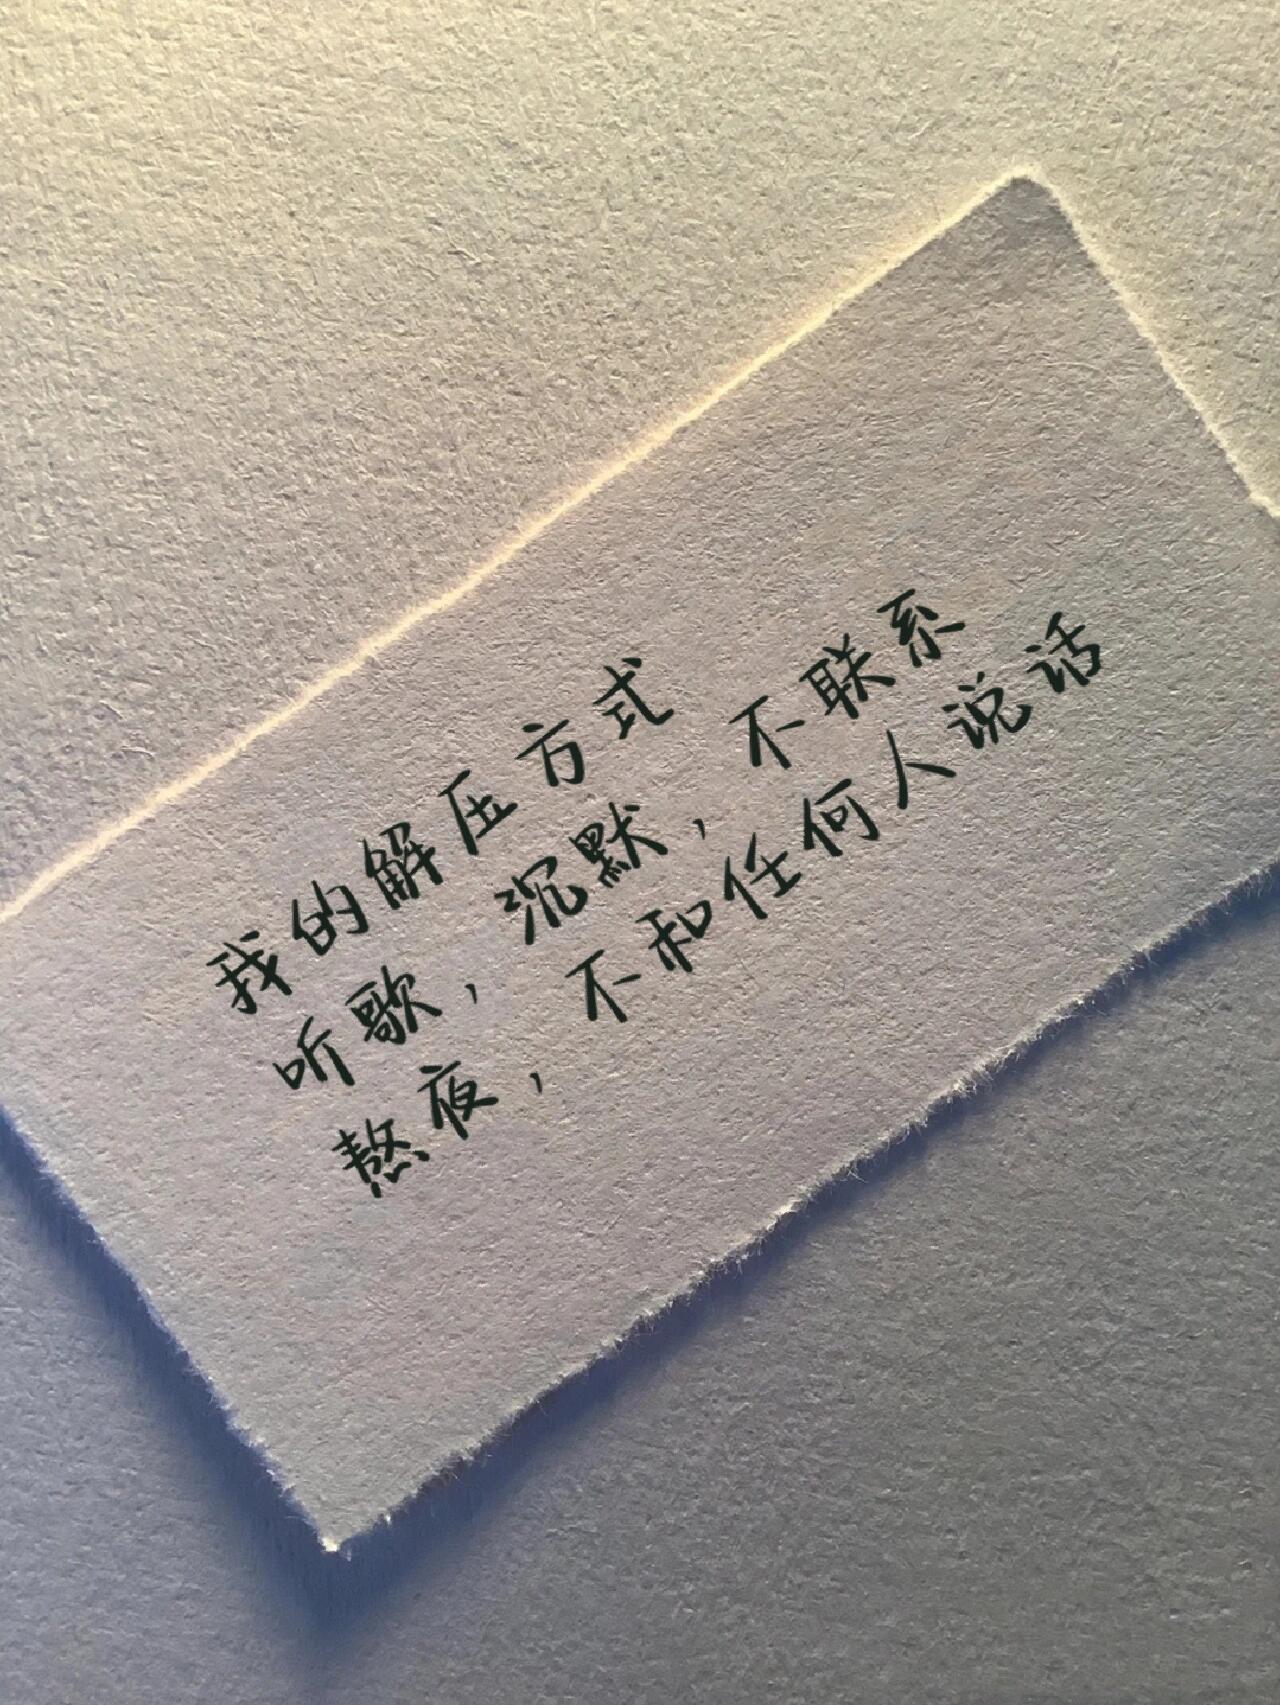 我的解压方式
听歌，沉默，不联系
熬夜，不和任何人说话